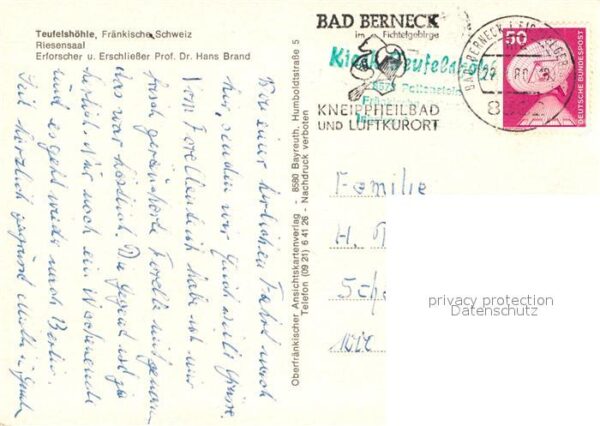 Teufelshöhle, Fränkische Schweiz
Riesensaal
Erforscher u. Erschließer Prof. Dr. Hans Brand
BAD BERNECK
im Fichtelgebirge
KNEIPPHEILBAD
UND LUFTKURORT
Kiosk Teufelshöhle
Pottenstein
50
DEUTSCHE BUNDESPOST
Oberfränkischer Ansichtskartenverlag - 8580 Bayreuth, Humboldtstraße 5
Telefon (09 21) 6 41 26 - Nachdruck verboten
Von einer herrlichen Fahrt nach
hier, senden wir Euch viele Grüße.
Vom Forellenteich habe ich mir
frisch geräucherte Forelle mitgenommen
das war köstlich. Die Gegend ist ja
herrlich. Nur noch ein Wochenende
und es geht wieder nach Berlin.
Seid herzlich gegrüßt
Familie
H.
privacy protection
Datenschutz